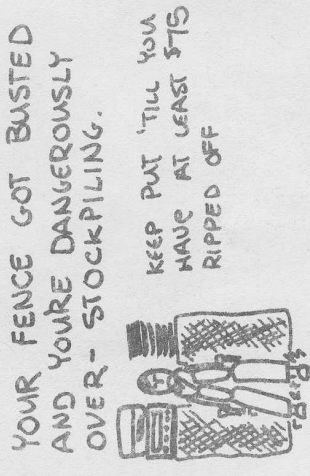 YOUR FENCE GOT BUSTED
AND YOU'RE DANGEROUSLY
OVER-STOCKPILING.
KEEP PUT 'TILL YOU
HAVE AT LEAST $75
RIPPED OFF